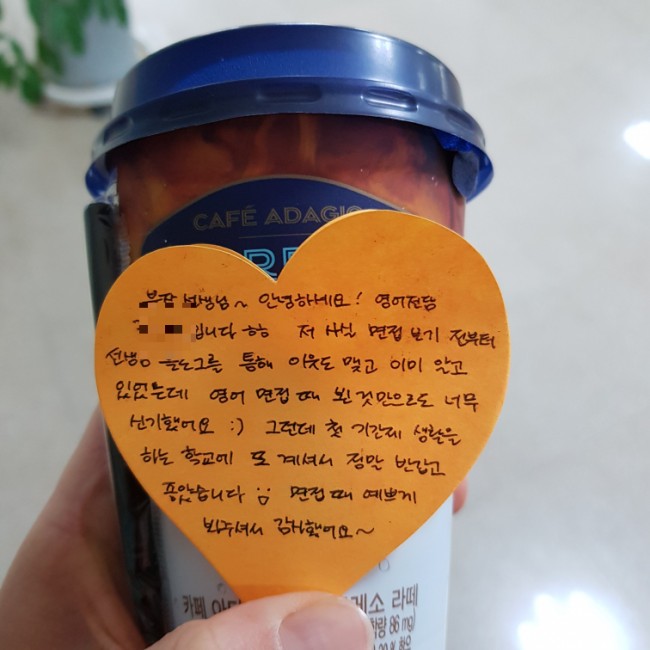 CAFÉ ADAGIO
부장 선생님~ 안녕하세요! 영어전담
입니다 ㅎㅎ 저 사실 면접 보기 전부터
선생님 블로그를 통해 이웃도 맺고 이미 알고
있었는데 영어 면접 때 뵌 것만으로도 너무
신기했어요 :) 그런데 첫 기간제 생활을
하는 학교에 또 계셔서 정말 반갑고
좋았습니다 면접 때 예쁘게
봐주셔서 감사했어요~
카페 라떼